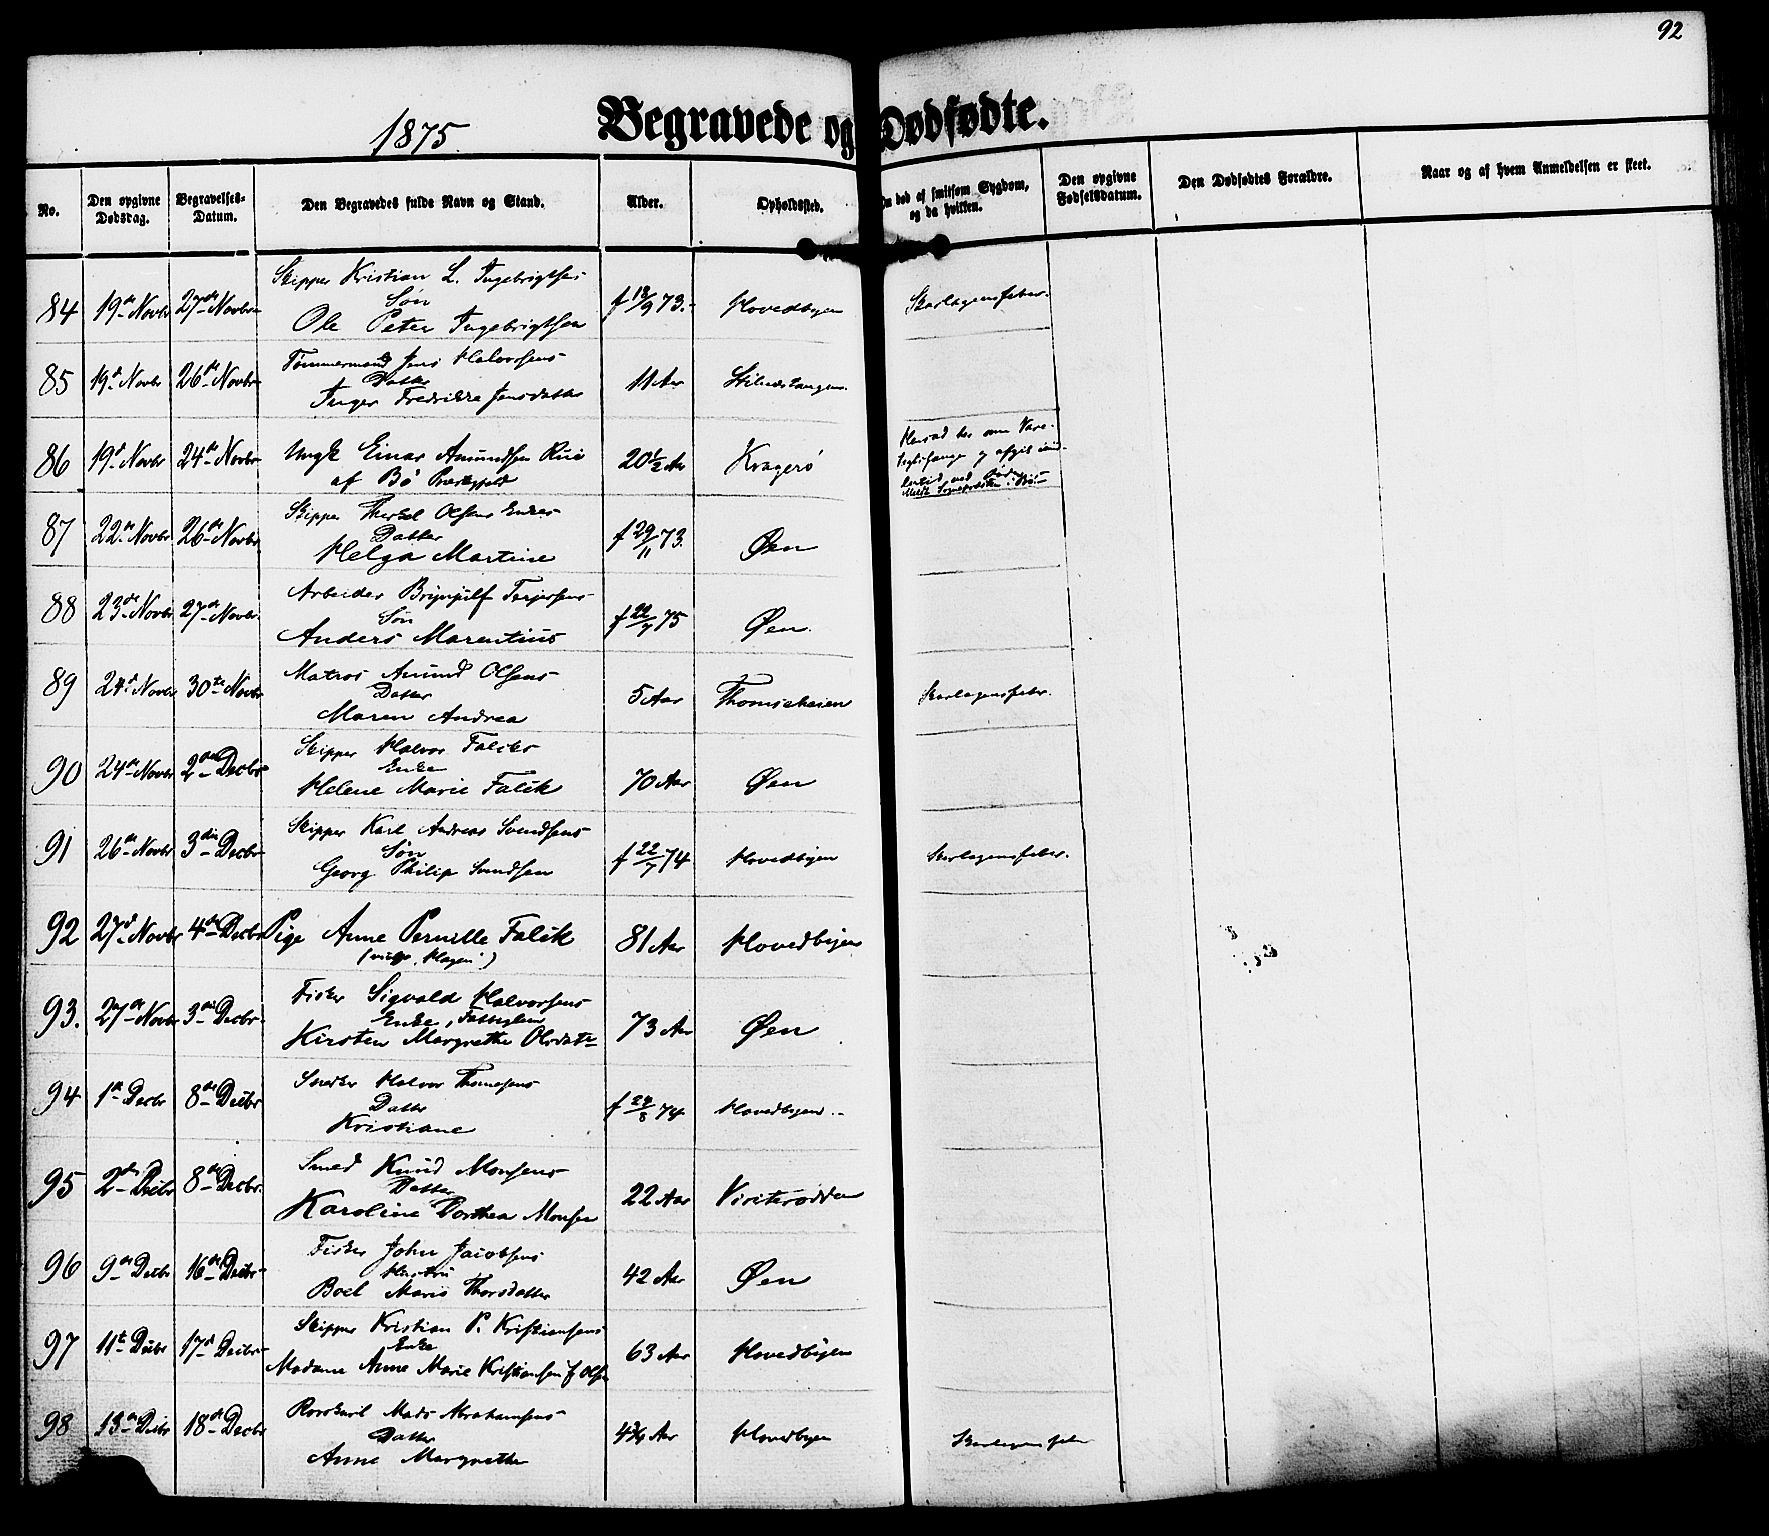 92
1875.
Begravede og Dødfødte.
No.
Den opgivne Dødsdag.
Begravelses-Datum.
Den Begravedes fulde Navn og Stand.
Alder.
Opholdssted.
død af smitsom Sygdom, og da hvilken.
Den opgivne Fødselsdatum.
Den Dødfødtes Forældre.
Naar og af hvem Anmeldelsen er skeet.
Skipper Kristian L. Ingebrigtsens
84 19de Novbr 27de Novbr Søn f 13/9 73. Hovedbyen Skarlagensfeber.
Ole Peter Ingebrigtsen
Tømmermand Jens Halvorsens
85 19d Novbr 26de Novbr Datter 11 Aar
Inger Fredrikke Jensdatter
86 19d Novbr 24de Novbr Ungk Einar Aamundsen Rue 20½ Aar Kragerø
af Bø Præstegjeld
Skipper Therkel Olsens Enkes
87 22de Novbr 26de Novbr Datter f 29/11 73. Øen
Helga Martine
Arbeider Brynjulf Terjesens
88 23de Novbr 27de Novbr. Søn f 22/7 75 Øen.
Anders Marentius
Matros Amund Olsens
89 24d Novbr 30te Novbr Datter 5 Aar Thomeheien Skarlagensfeber.
Maren Andrea
Skipper Halvor Falcks
90 24de Novbr 2den Decbr Enke 70 Aar Øen
Helene Marie Falck
Skipper Karl Andreas Svendsens
91 26de Novbr 3die Decbr Søn f 22/7 74 Hovedbyen Skarlagensfeber.
Georg Philip Svendsen
92 27d Novbr 4de Decbr Pige Anne Pernille Falck 81 Aar Hovedbyen
Fisker Sigvald Halvorsens
93. 27de Novbr 3die Decbr. Enke, Fattiglem 73 Aar Øen
Kirsten Margrethe Olsdatr
Snedker Halvor Thomesens
94 1ste Decbr 8de Decbr Datter f 24/8 74 Hovedbyen.
Kristiane
Smed Knud Monsens
95 2den Decbr 8de Decbr. Datter 22 Aar
Karoline Dorthea Monsen
Fisker John Jacobsens
96 9de Decbr 16de Decbr Hustru 42 Aar Øen
Boel Marie Thorsdatter
Skipper Kristian P. Kristiansens
97 11te Decbr 17d Decbr Enke 63 Aar Hovedbyen
Madame Anne Marie Kristiansen f Olsen
Rorskarl Mads Abrahamsens
98 13de Decbr 18de Decbr Datter 4¾ Aar Hovedbyen Skarlagensfeber
Anne Margrethe